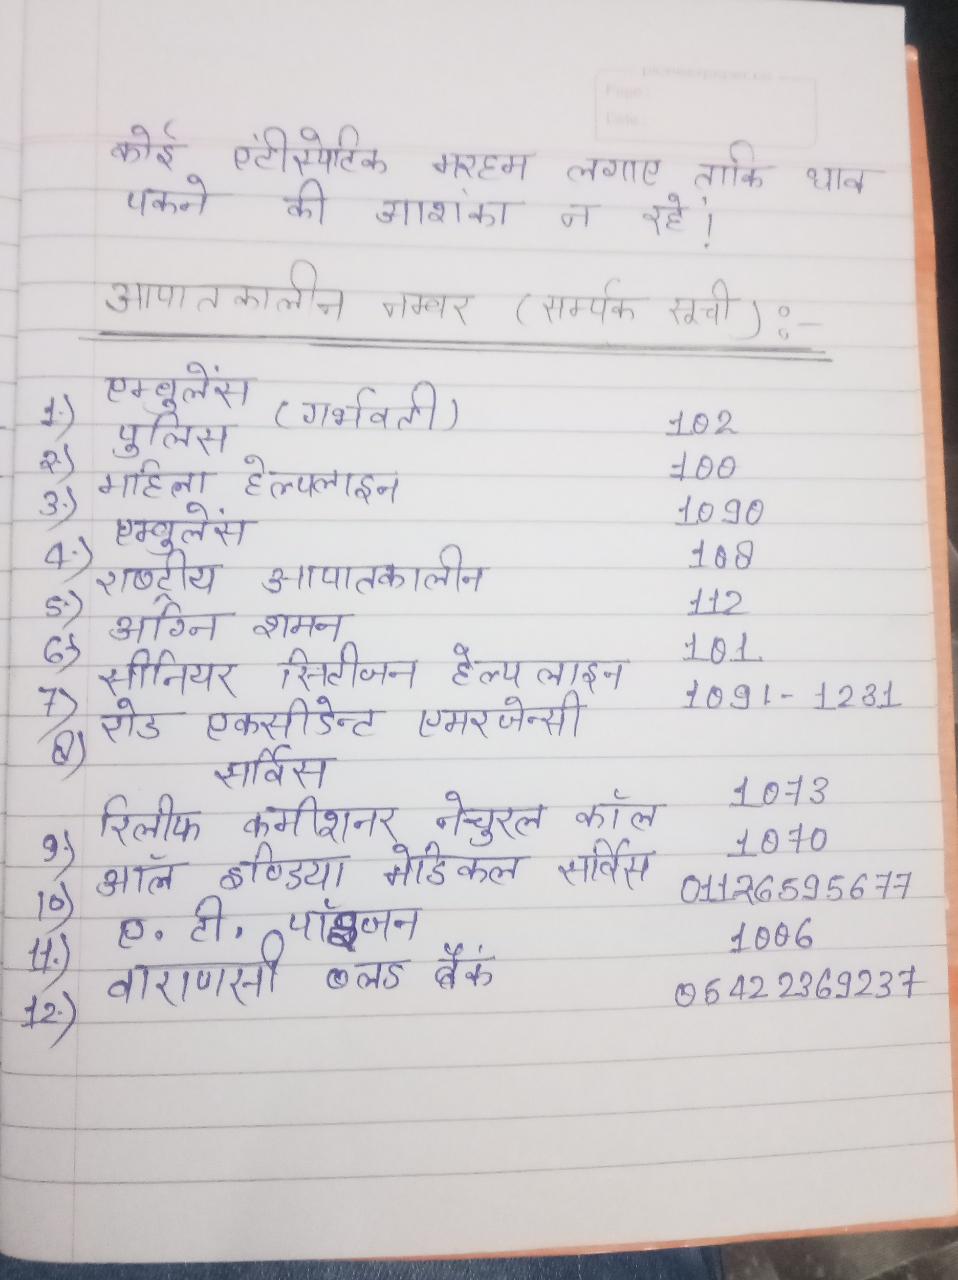 कोई एंटीस्पेटिक मरहम लगाए ताकि घाव
पकने की आशंका न रहे!
आपातकालीन नम्बर (सर्म्पक सूची) :-
1.) एम्बुलेंस (गर्भवती) 102
2) पुलिस 100
3.) महिला हेल्पलाइन 1090
4.) एम्बुलेंस 108
5.) राष्ट्रीय आपातकालीन 112
6) अग्नि शमन 101
7) सीनियर सिटीजन हेल्प लाइन 1091- 1231
8) रोड एकसीडेन्ट एमरजेन्सी
सर्विस 1073
9) रिलीफ कमीशनर नेचुरल कॉल 1070
10) ऑल इण्डिया मेडिकल सर्विस 01126595677
11.) ए. टी. पॉइजन 1006
12.) वाराणसी ब्लड बैंक 05422369237